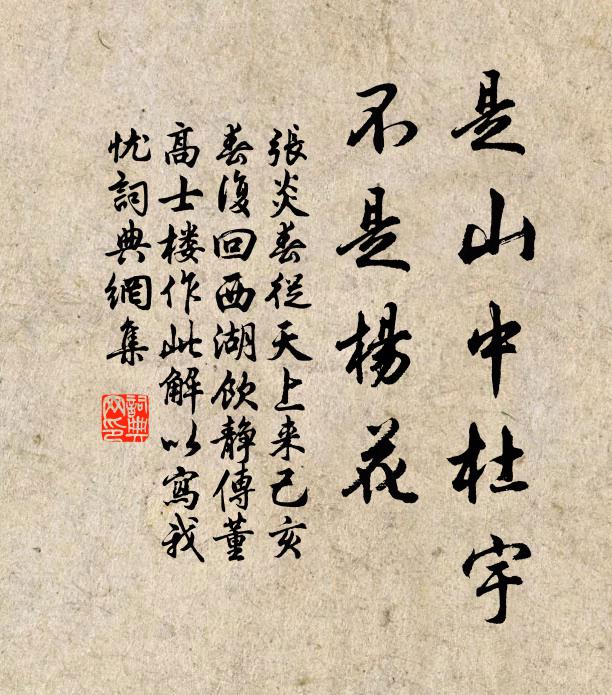 是山中杜宇
不是楊花
張炎春從天上来己亥
春復回西湖飲静傳董
高士楼作此解以寫我
忧詞典網集
詞典
网印